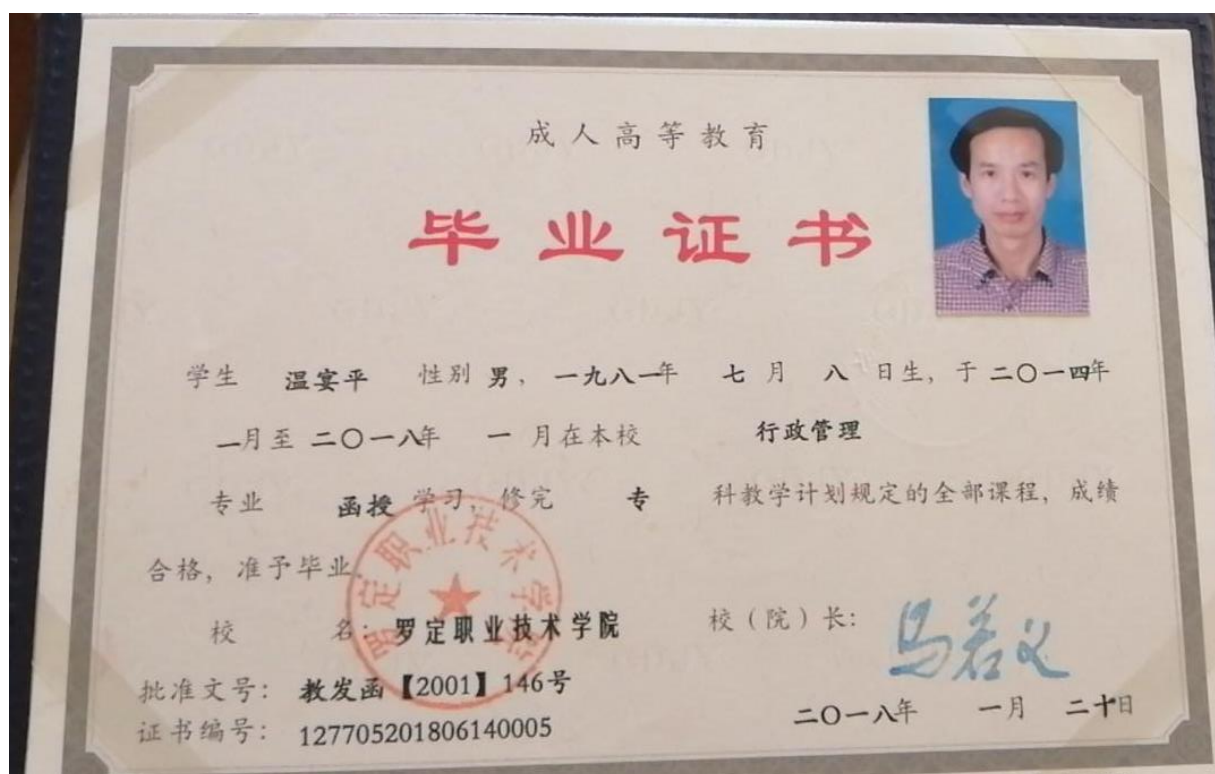 成人高等教育
毕业证书
学生 温宴平 性别 男，一九八一年 七月 八日生，于二〇一四年
一月至二〇一八年 一月在本校 行政管理
专业 函授 学习，修完 专 科教学计划规定的全部课程，成绩
合格，准予毕业。
校 名：罗定职业技术学院 校（院）长：马若义
批准文号： 教发函【2001】146号
证书编号： 127705201806140005
二〇一八年 一月 二十日
罗定职业技术学院